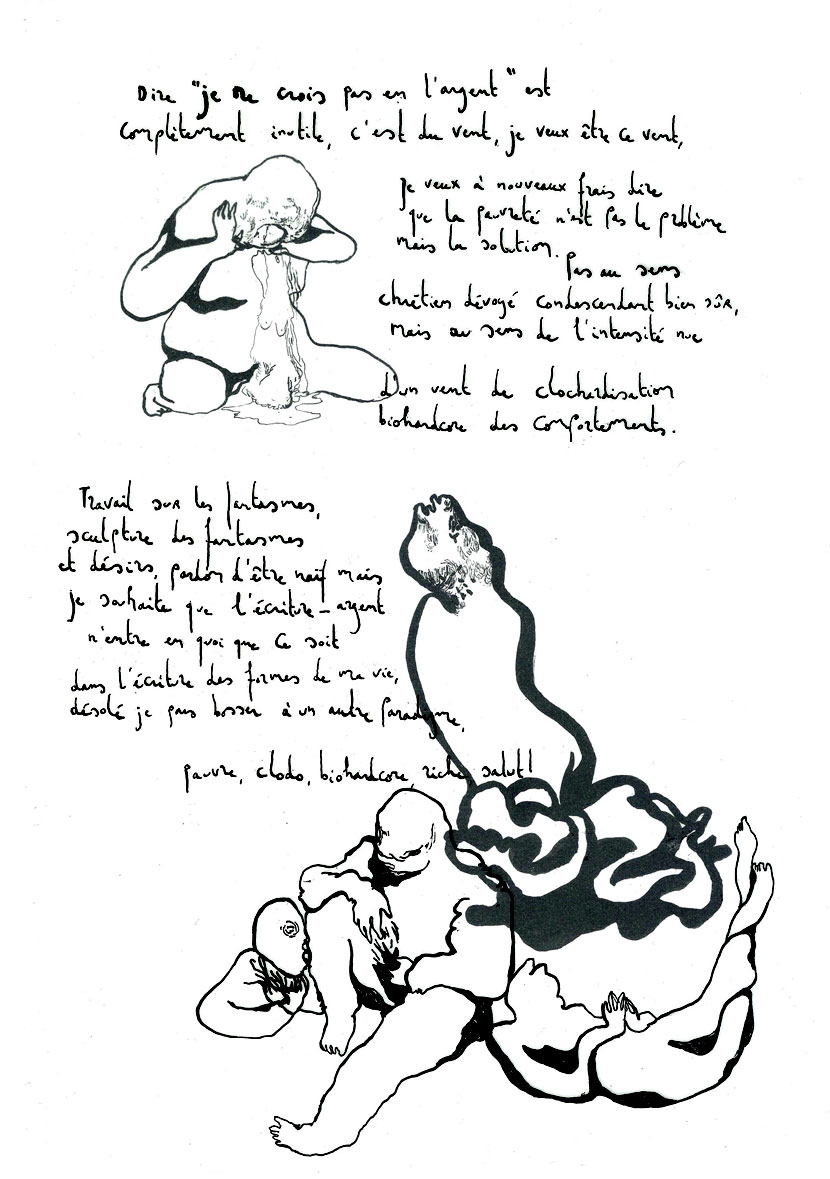 Dire "je ne crois pas en l'argent" est
complètement inutile, c'est du vent, je veux être ce vent,
je veux à nouveaux frais dire
que la pauvreté n'est pas le problème
mais la solution.
Pas au sens
chrétien dévoyé condescendant bien sûr,
mais au sens de l'intensité nue
d'un vent de clochardisation
biohardcore des comportements.
Travail sur les fantasmes,
sculpture des fantasmes
et désirs, pardon d'être naïf mais
je souhaite que l'écriture-argent
n'entre en quoi que ce soit
dans l'écriture des formes de ma vie,
désolé je pars bosser à un autre paradigme,
pauvre, clodo, biohardcore, riche, salut!